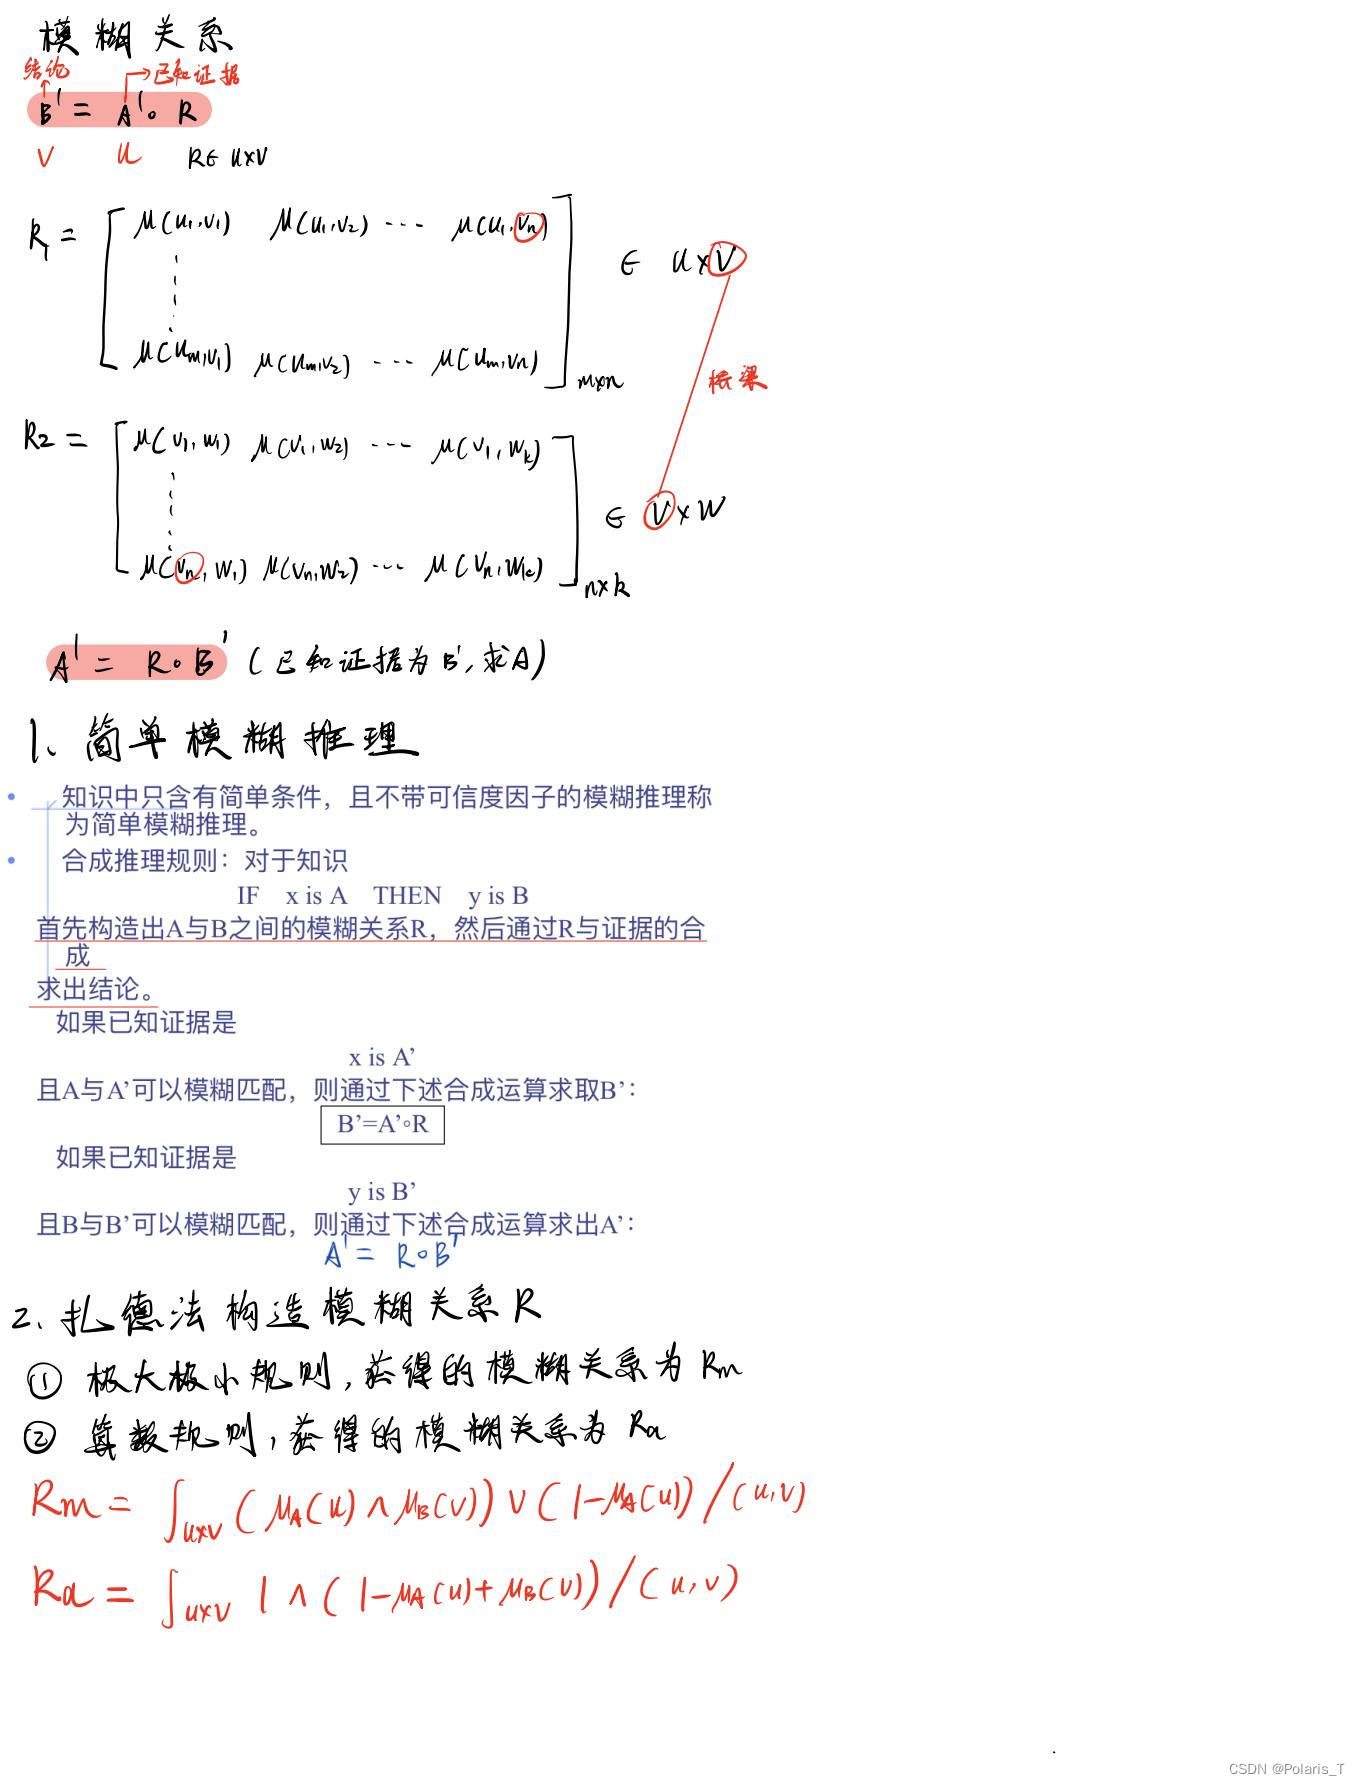 模糊关系
结论 已知证据
B' = A'∘R
V U R∈U×V
R₁ = [ μ(u₁,v₁) μ(u₁,v₂) ··· μ(u₁,vₙ)
μ(uₘ,v₁) μ(uₘ,v₂) ··· μ(uₘ,vₙ) ]m×n ∈ U×V
桥梁
R2 = [ μ(v₁,w₁) μ(v₁,w₂) ··· μ(v₁,wₖ)
μ(vₙ,w₁) μ(vₙ,w₂) ··· μ(vₙ,wₖ) ]n×k ∈ V×W
A' = R∘B' (已知证据为B',求A)
1、简单模糊推理
• 知识中只含有简单条件，且不带可信度因子的模糊推理称
为简单模糊推理。
• 合成推理规则：对于知识
IF x is A THEN y is B
首先构造出A与B之间的模糊关系R，然后通过R与证据的合
成
求出结论。
如果已知证据是
x is A’
且A与A’可以模糊匹配，则通过下述合成运算求取B’：
B’=A’∘R
如果已知证据是
y is B’
且B与B’可以模糊匹配，则通过下述合成运算求出A’：
A' = R∘B'
2、扎德法构造模糊关系R
① 极大极小规则,获得的模糊关系为Rm
② 算数规则,获得的模糊关系为Ra
Rm = ∫U×V (μA(u)∧μB(v))∨(1-μA(u))/(u,v)
Ra = ∫U×V 1∧(1-μA(u)+μB(v))/(u,v)
CSDN @Polaris_T